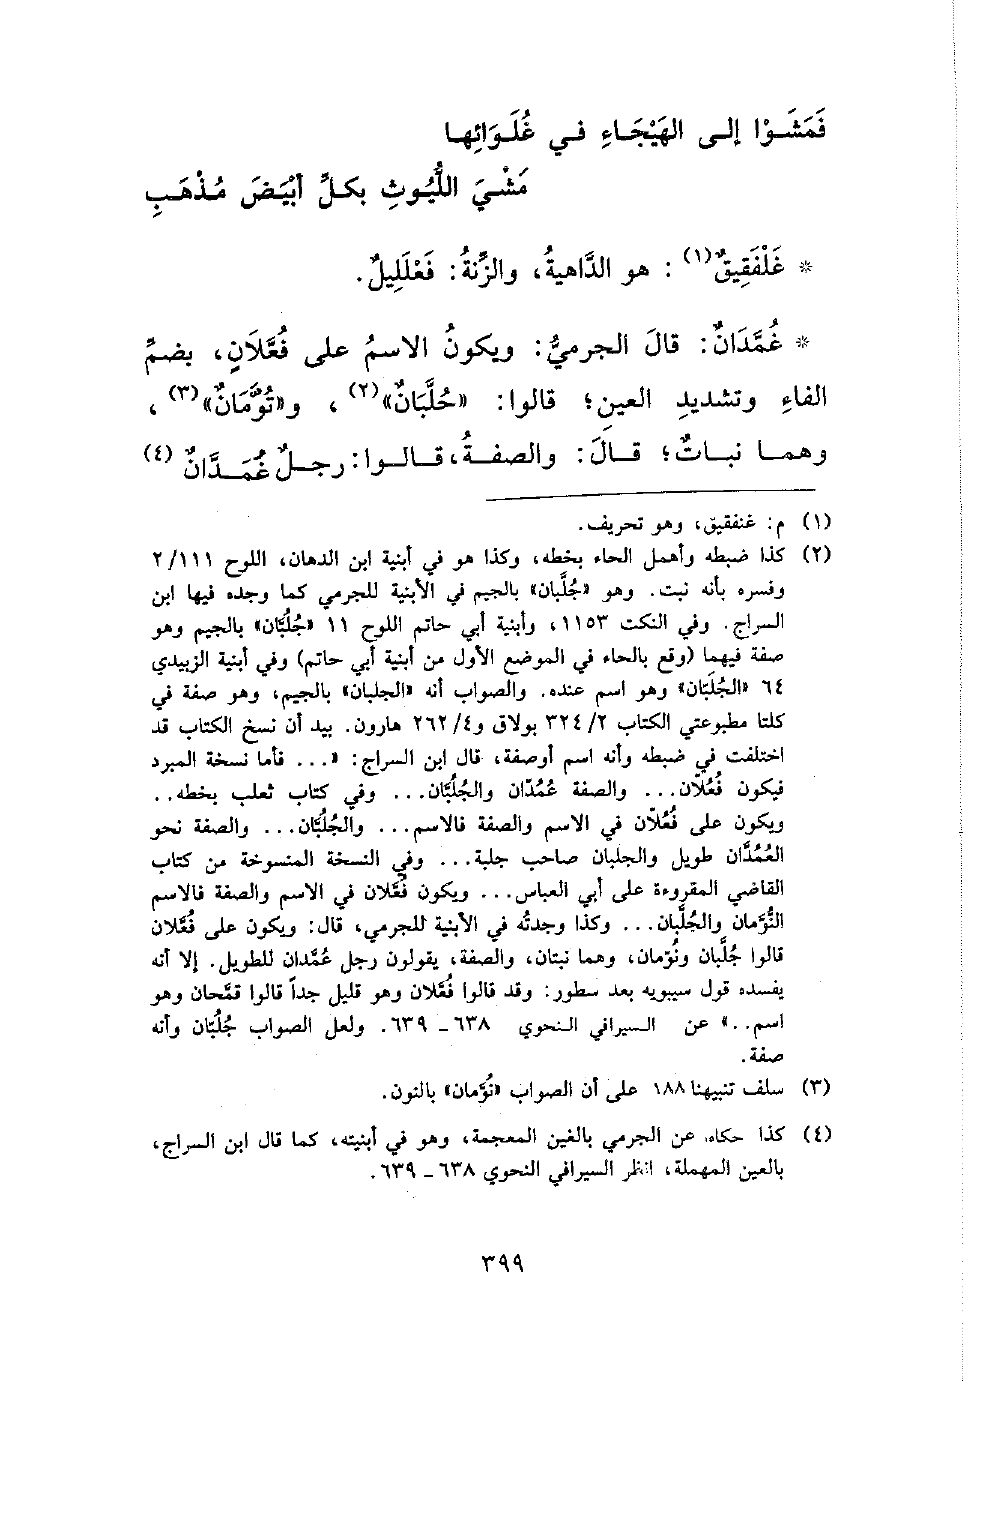 فَمَشَوْا إلى الهَيْجَاءِ في غُلَوَائِها
مَشْيَ اللُّيُوثِ بكلِّ أبْيَضَ مُذْهَبِ
* غَلْفَقِيقٌ(١) : هو الدَّاهيةُ، والزِّنةُ: فَعْلَلِيلٌ.
* غُمَّدَانٌ: قالَ الجرميُّ: ويكونُ الاسمُ على فُعَّلَانٍ، بضمِّ
الفاءِ وتشديدِ العينِ؛ قالوا: «حُلَّبَانٌ»(٢) ، و«تُوَّمَانٌ»(٣) ،
وهما نباتٌ؛ قالَ: والصفةُ، قالوا: رجلٌ غُمَدَّانٌ (٤)
(١) م: غنفقيق، وهو تحريف.
(٢) كذا ضبطه وأهمل الحاء بخطه، وكذا هو في أبنية ابن الدهان، اللوح ٢/١١١
وفسره بأنه نبت. وهو «جُلَّبان» بالجيم في الأبنية للجرمي كما وجده فيها ابن
السراج. وفي النكت ١١٥٣، وأبنية أبي حاتم اللوح ١١ «جُلُبَّان» بالجيم وهو
صفة فيهما (وقع بالحاء في الموضع الأول من أبنية أبي حاتم) وفي أبنية الزبيدي
٦٤ «الجُلَبَّان» وهو اسم عنده. والصواب أنه «الجلبان» بالجيم، وهو صفة في
كلتا مطبوعتي الكتاب ٣٢٤/٢ بولاق و٢٦٢/٤ هارون. بيد أن نسخ الكتاب قد
اختلفت في ضبطه وأنه اسم أوصفة، قال ابن السراج: «... فأما نسخة المبرد
فيكون فُعُلّان... والصفة عُمُدّان والجُلُبَّان... وفي كتاب ثعلب بخطه..
ويكون على فُعُلّان في الاسم والصفة فالاسم... والجُلُبَّان... والصفة نحو
العُمُدَّان طويل والجلبان صاحب جلبة... وفي النسخة المنسوخة من كتاب
القاضي المقروءة على أبي العباس... ويكون فُعَّلان في الاسم والصفة فالاسم
التُّوَّمان والجُلَّبان... وكذا وجدتُه في الأبنية للجرمي، قال: ويكون على فُعَّلان
قالوا جُلَّبان ونُوَّمان، وهما نبتان، والصفة، يقولون رجل عُمَّدان للطويل. إلا أنه
يفسده قول سيبويه بعد سطور: وقد قالوا فُعَّلان وهو قليل جداً قالوا قمَّحان وهو
اسم..» عن السيرافي النحوي ٦٣٨ - ٦٣٩. ولعل الصواب جُلُبّان وأنه
صفة.
(٣) سلف تنبيهنا ١٨٨ على أن الصواب «نُوَّمان» بالنون.
(٤) كذا حكاه عن الجرمي بالغين المعجمة، وهو في أبنيته، كما قال ابن السراج،
بالعين المهملة، انظر السيرافي النحوي ٦٣٨ - ٦٣٩.
٣٩٩